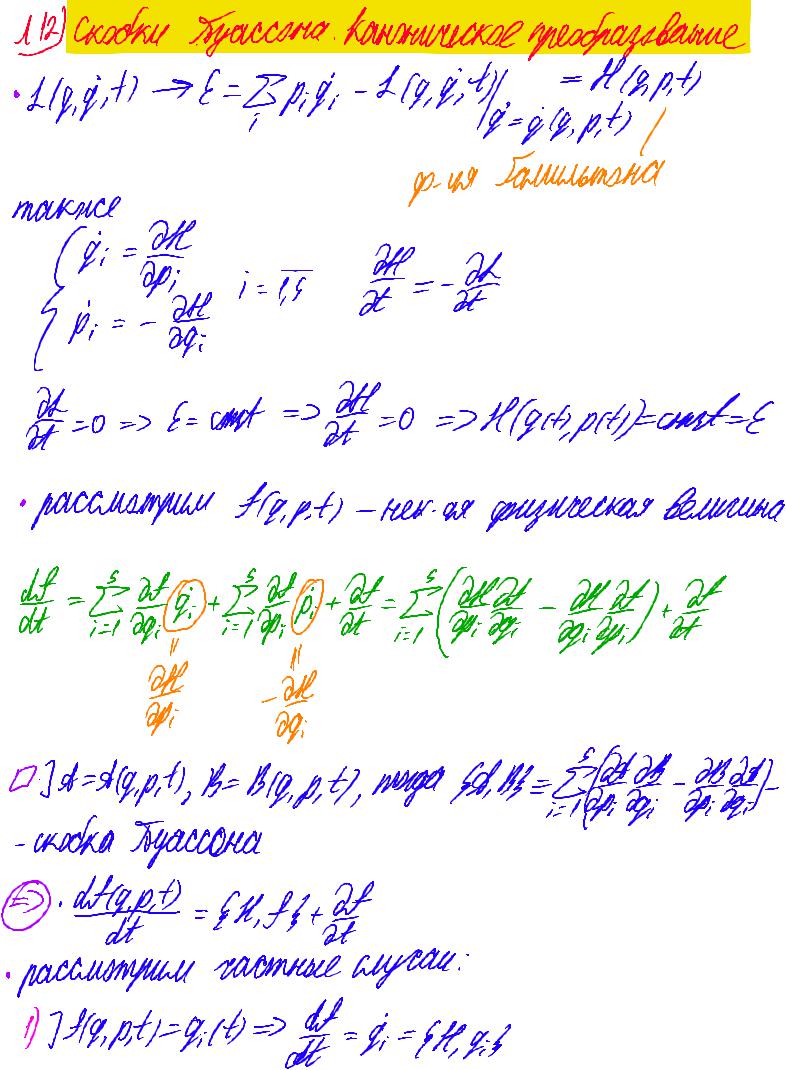 Л12) Скобки Пуассона. Каноническое преобразование
• L(q, q̇, t) → ε = ∑_i p_i q̇_i − L(q, q̇, t)|_{q̇ = q̇(q, p, t)} = H(q, p, t)
ф-ция Гамильтона
также
{ q̇_i = ∂H/∂p_i
ṗ_i = −∂H/∂q_i i = 1,s ∂H/∂t = −∂L/∂t
∂L/∂t = 0 => ε = const => ∂H/∂t = 0 => H(q(t), p(t)) = const = ε
• рассмотрим f(q, p, t) – нек-ая физическая величина
df/dt = ∑_{i=1}^s ∂f/∂q_i q̇_i + ∑_{i=1}^s ∂f/∂p_i ṗ_i + ∂f/∂t = ∑_{i=1}^s (∂H/∂p_i ∂f/∂q_i − ∂H/∂q_i ∂f/∂p_i) + ∂f/∂t
= ∂H/∂p_i = −∂H/∂q_i
□ ] A = A(q, p, t), B = B(q, p, t), тогда {A, B} ≡ ∑_{i=1}^s (∂A/∂p_i ∂B/∂q_i − ∂B/∂p_i ∂A/∂q_i) –
– скобка Пуассона
=> • df(q, p, t)/dt = {H, f} + ∂f/∂t
• рассмотрим частные случаи:
1) ] f(q, p, t) = q_i(t) => df/dt = q̇_i = {H, q_i}